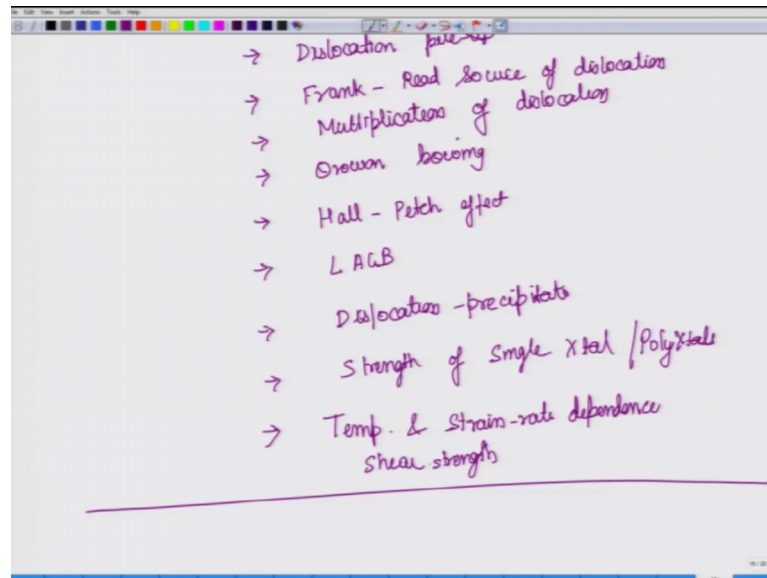 File Edit View Insert Actions Tools Help
→ Dislocation pile-up
→ Frank - Read Socuce of dislocation
→ Multiplication of dislocation
→ Orowan bowing
→ Hall - Petch effect
→ LAGB
→ Dislocation - precipitate
→ Strength of Single Xtal / PolyXtals
→ Temp. & Strain-rate dependence
Shear strength